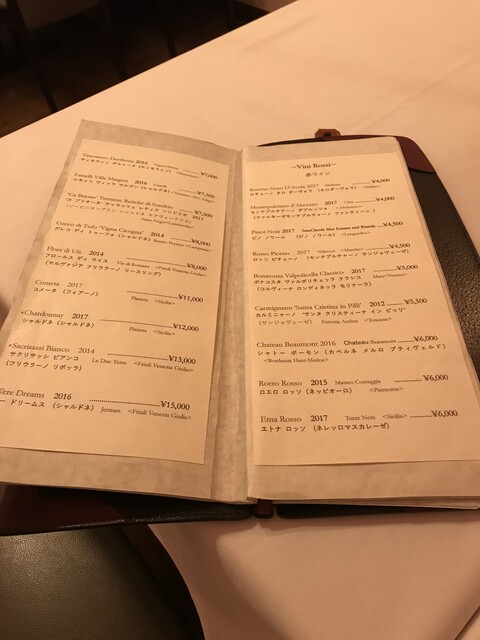 Timorasso Derthona 2014 ¥7,000
Lunelli Villa Margon 2016 Lunelli ¥7,500
ルネッリ ヴィッラ マルゴン (シャルドネ)
Terrazze Retiche di Sondrio ¥7,500
Greco di Tufo "Vigna Cicogna" 2014 ¥8,000
グレコ ディ トゥーフォ
Flors di Uis 2014 ¥8,000
フロールス ディ ウイス Vie di Romans <Friuli Venezia Giulia>
(マルヴァジア フリウラーノ リースリング)
Cometa 2017 ¥11,000
コメータ (フィアーノ) Planeta <Sicilia>
*Chardonnay 2017 ¥12,000
シャルドネ (シャルドネ) Planeta <Sicilia>
*Sacrisassi Bianco 2014 ¥13,000
サクリサッシ ビアンコ Le Due Terre <Friuli Venezia Giulia>
(フリウラーノ リボッラ)
Dreams 2016 ¥15,000
ー ドリームス (シャルドネ) Jerman <Friuli Venezia Giulia>
~Vini Rossi~
赤ワイン
Rosso Nero D'Avola 2017 ¥4,000
ロッチョーネ
Montepulciano d'Abruzzo 2017 ¥4,000
モンテプルチアーノ ダブルッツォ
Pinot Noir 2017 ¥4,500
ピノ ノワール (ピノ ノワール)
Rosso Piceno 2017 ¥4,500
ロッソ ピチェーノ (モンテプルチャーノ サンジョヴェーゼ)
Bonacosta Valpolicella Classico 2017 ¥5,000
ボナコスタ ヴァルポリチェッラ クラシコ Masi <Veneto>
(コルヴィーナ ロンディネッラ モリナーラ)
Carmignano 'Santa Cristina in Pilli' 2012 ¥5,500
カルミニャーノ 'サンタ クリスティーナ イン ピッリ'
(サンジョヴェーゼ) Fattoria Ambra <Toscana>
Chateau Beaumont 2016 Chateau Beaumont ¥6,000
シャトー ボーモン (カベルネ メルロ プティヴェルド)
<Bordeaux Haut-Medoc>
Roero Rosso 2015 Matteo Correggia ¥6,000
ロエロ ロッソ (ネッビオーロ) <Piemonte>
Etna Rosso 2017 Terre Nere <Sicilia> ¥6,000
エトナ ロッソ (ネレッロマスカレーゼ)